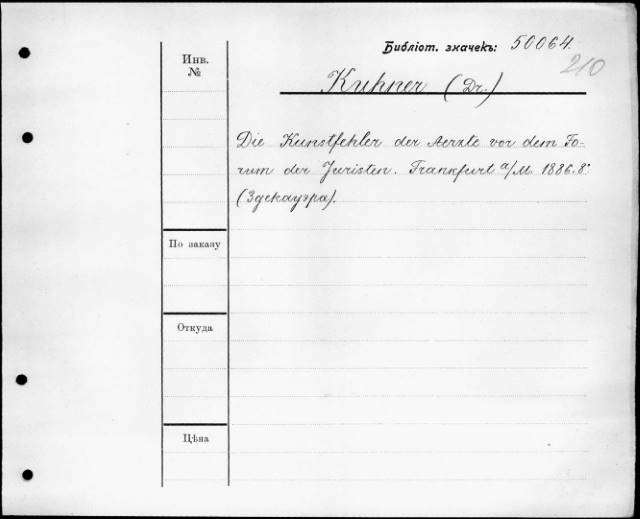 Библіот. значекъ: 50064.
210
Инв.
№
Kuhner (Dr.)
Die Kunstfehler der Aerzte vor dem Fo-
rum der Juristen. Frankfurt a/M. 1886. 8º
(Здекауэра).
По заказу
Откуда
Цѣна